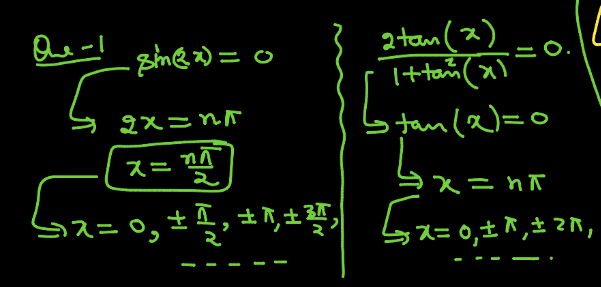 Que-1
sin(2x) = 0
2x = nπ
x = nπ/2
x = 0, ± π/2, ± π, ± 3π/2,
- - - - -
2tan(x)/1+tan²(x) = 0.
tan(x) = 0
x = nπ
x = 0, ± π, ± 2π,
- - - - -